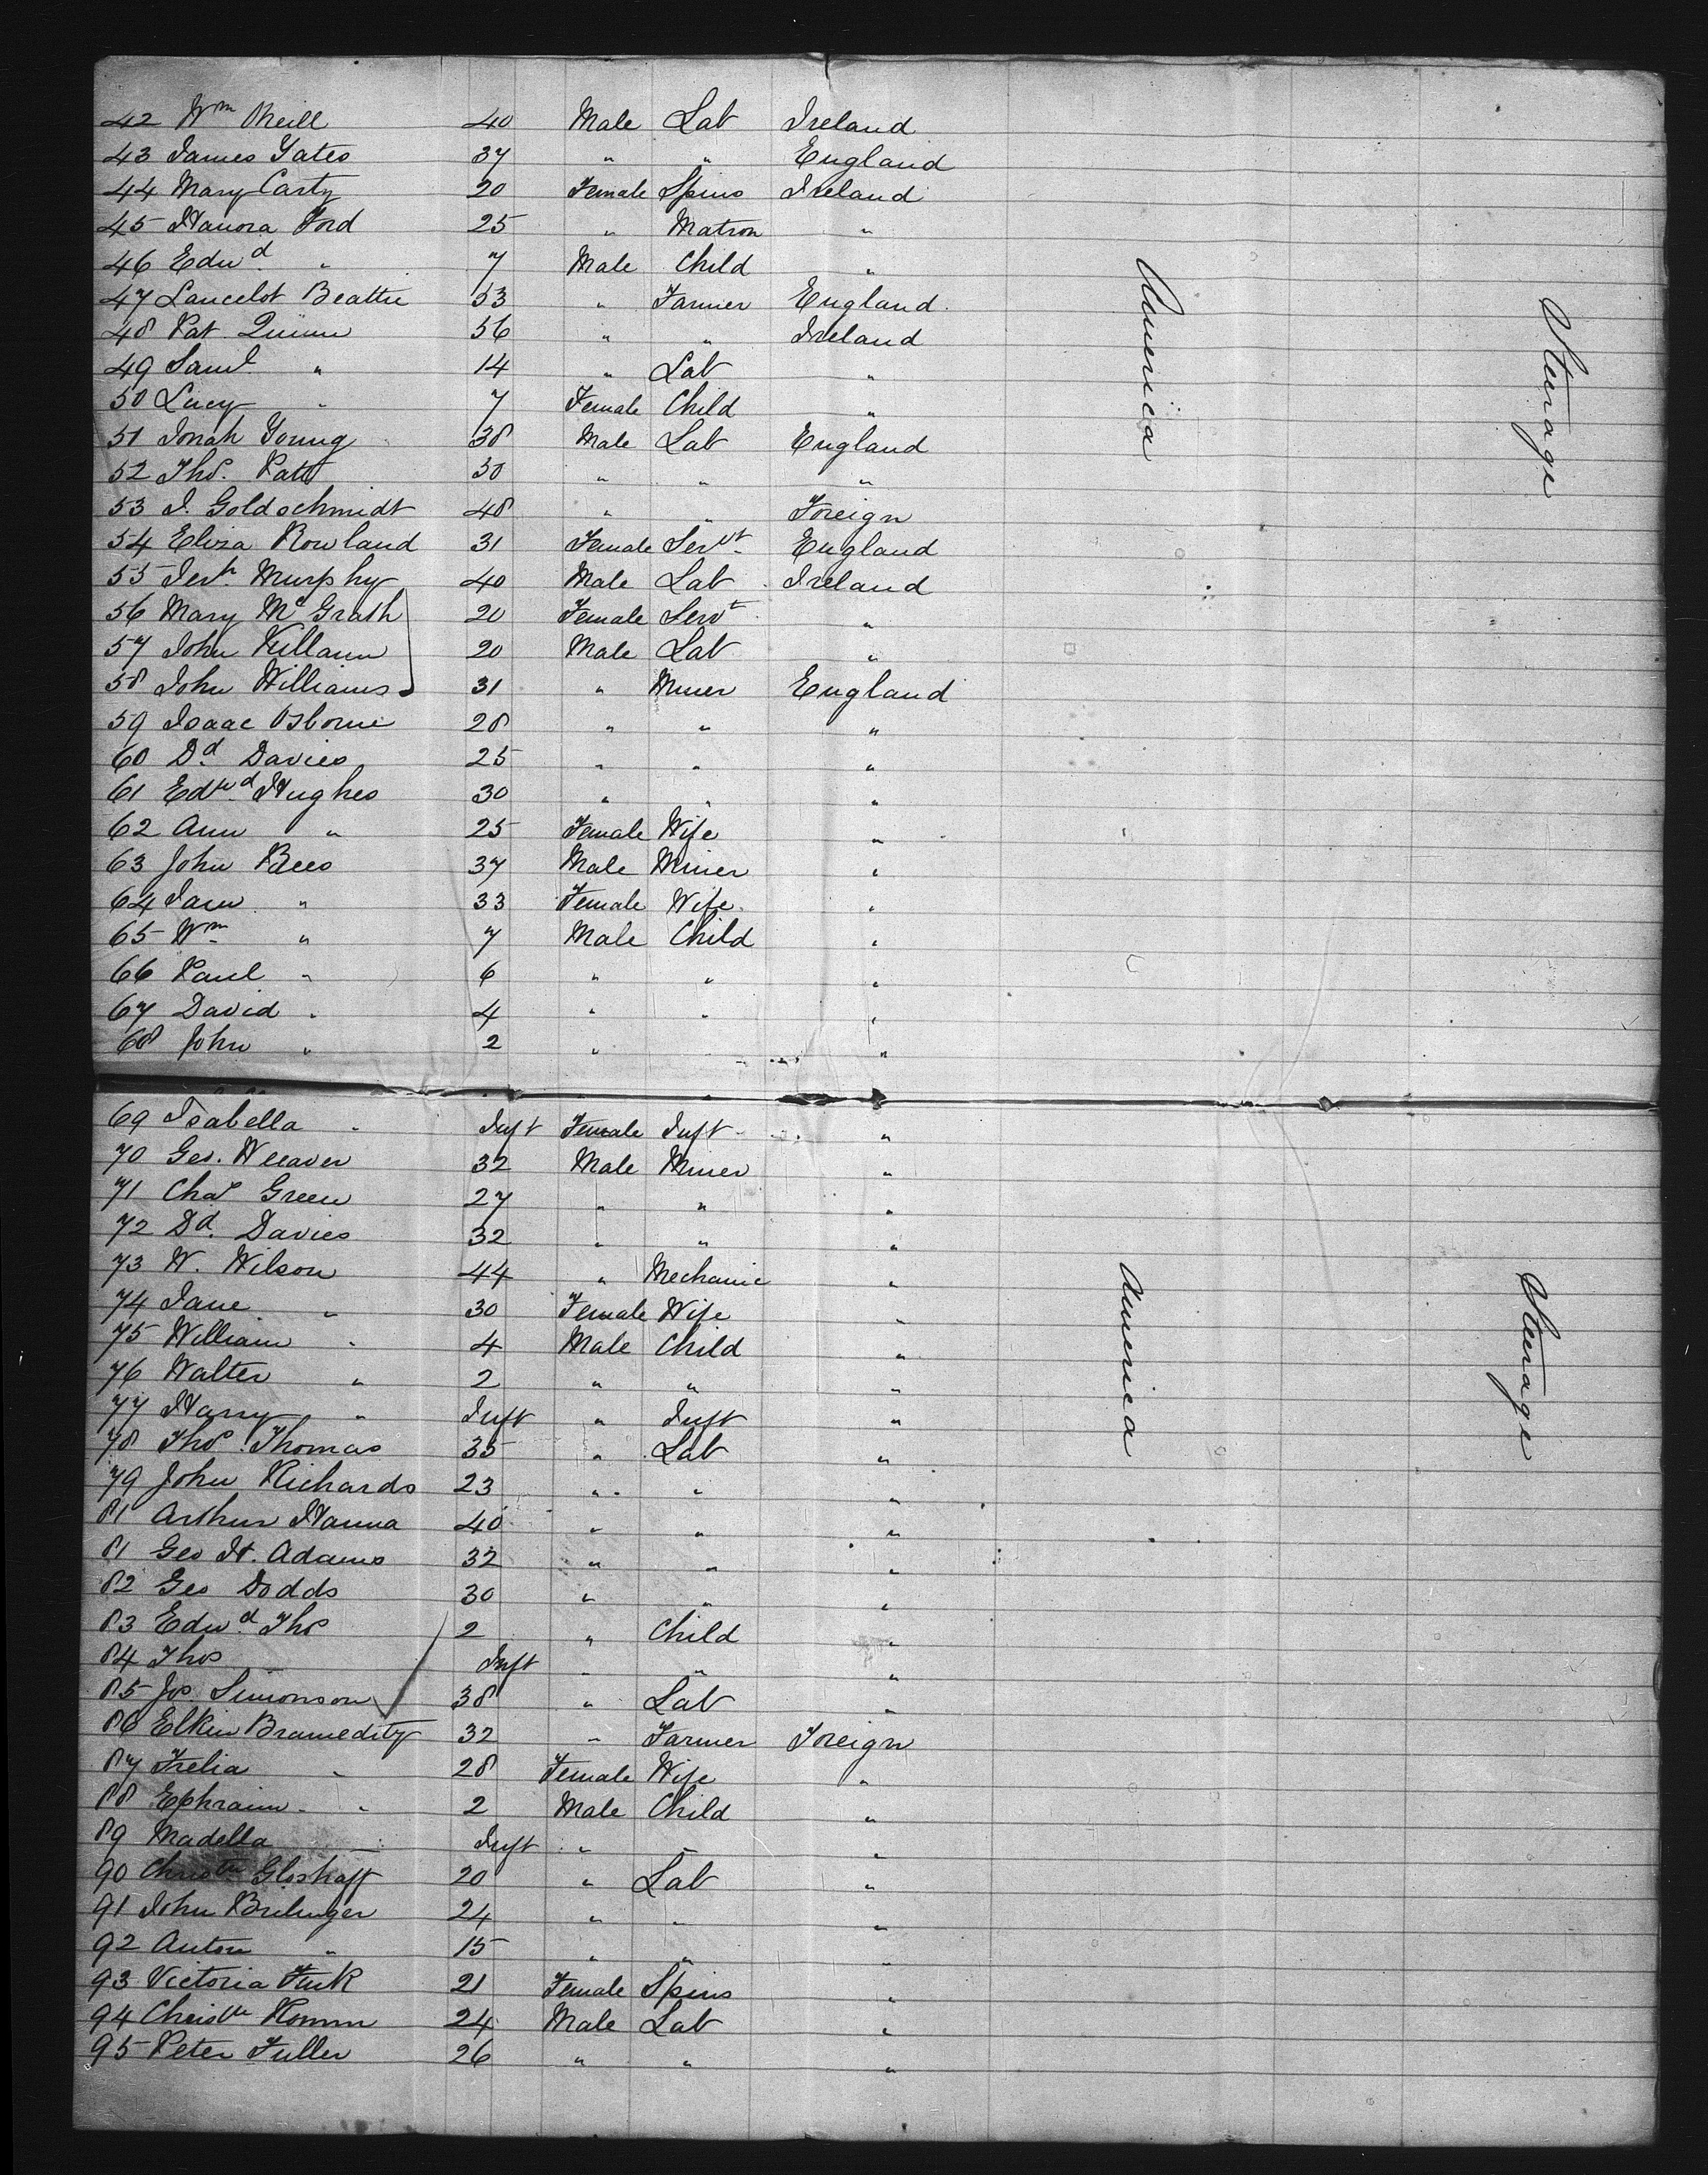 42 Wm Oneill 40 Male Lab Ireland
43 James Yates 37 " " England
44 Mary Carty 20 Female Spins Ireland
45 Hanora Ford 25 " Matron "
46 Edwd " 7 Male Child "
47 Lancelot Beattie 53 " Farmer England
48 Pat Quinn 56 " " Ireland
49 Saml " 14 " Lab "
50 Lucy " 7 Female Child "
51 Jonah Young 38 Male Lab England
52 Thos. Patt 30 " " "
53 I. Goldschmidt 48 " " Foreign
54 Eliza Rowland 31 Female Servt England
55 Murphy 40 Male Lab Ireland
56 Mary McGrath 20 Female Servt "
57 John Killann 20 Male Lab "
58 John Williams 31 " Miner England
59 Isaac Osborne 28 " " "
60 Dd. Davies 25 " " "
61 Edwd Hughes 30 " " "
62 Ann " 25 Female Wife "
63 John Rees 37 Male Miner "
64 Jane " 33 Female Wife "
65 Wm " 7 Male Child "
66 Paul " 6 " " "
67 David " 4 " " "
68 John " 2 " "
America
Steerage
69 Isabella " Inft Female Inft "
70 Geo. Weaver 32 Male Miner "
71 Chas Green 27 " " "
72 Dd. Davies 32 " " "
73 W. Wilson 44 " Mechanic "
74 Jane " 30 Female Wife "
75 William " 4 Male Child "
76 Walter " 2 " " "
77 Harry " Inft " Inft "
78 Thos. Thomas 35 " Lab "
79 John Richards 23 " " "
81 Arthur Hanna 40 " " "
81 Geo H. Adams 32 " " "
82 Geo Dodds 30 " " "
83 Edwd Thos 2 " Child "
84 Thos Inft " " "
85 Jos. Simonson 38 " Lab "
86 Elkin Bramedity 32 " Farmer Foreign
87 Frelia " 28 Female Wife "
88 Ephraim " 2 Male Child "
89 Madella " Inft " " "
90 Gloshaff 20 " Lab "
91 John Brelinger 24 " " "
92 Anton " 15 " " "
93 Victoria Funk 21 Female Spins "
94 Christn Komm 24 Male Lab "
95 Peter Fuller 26 " " "
America
Steerage